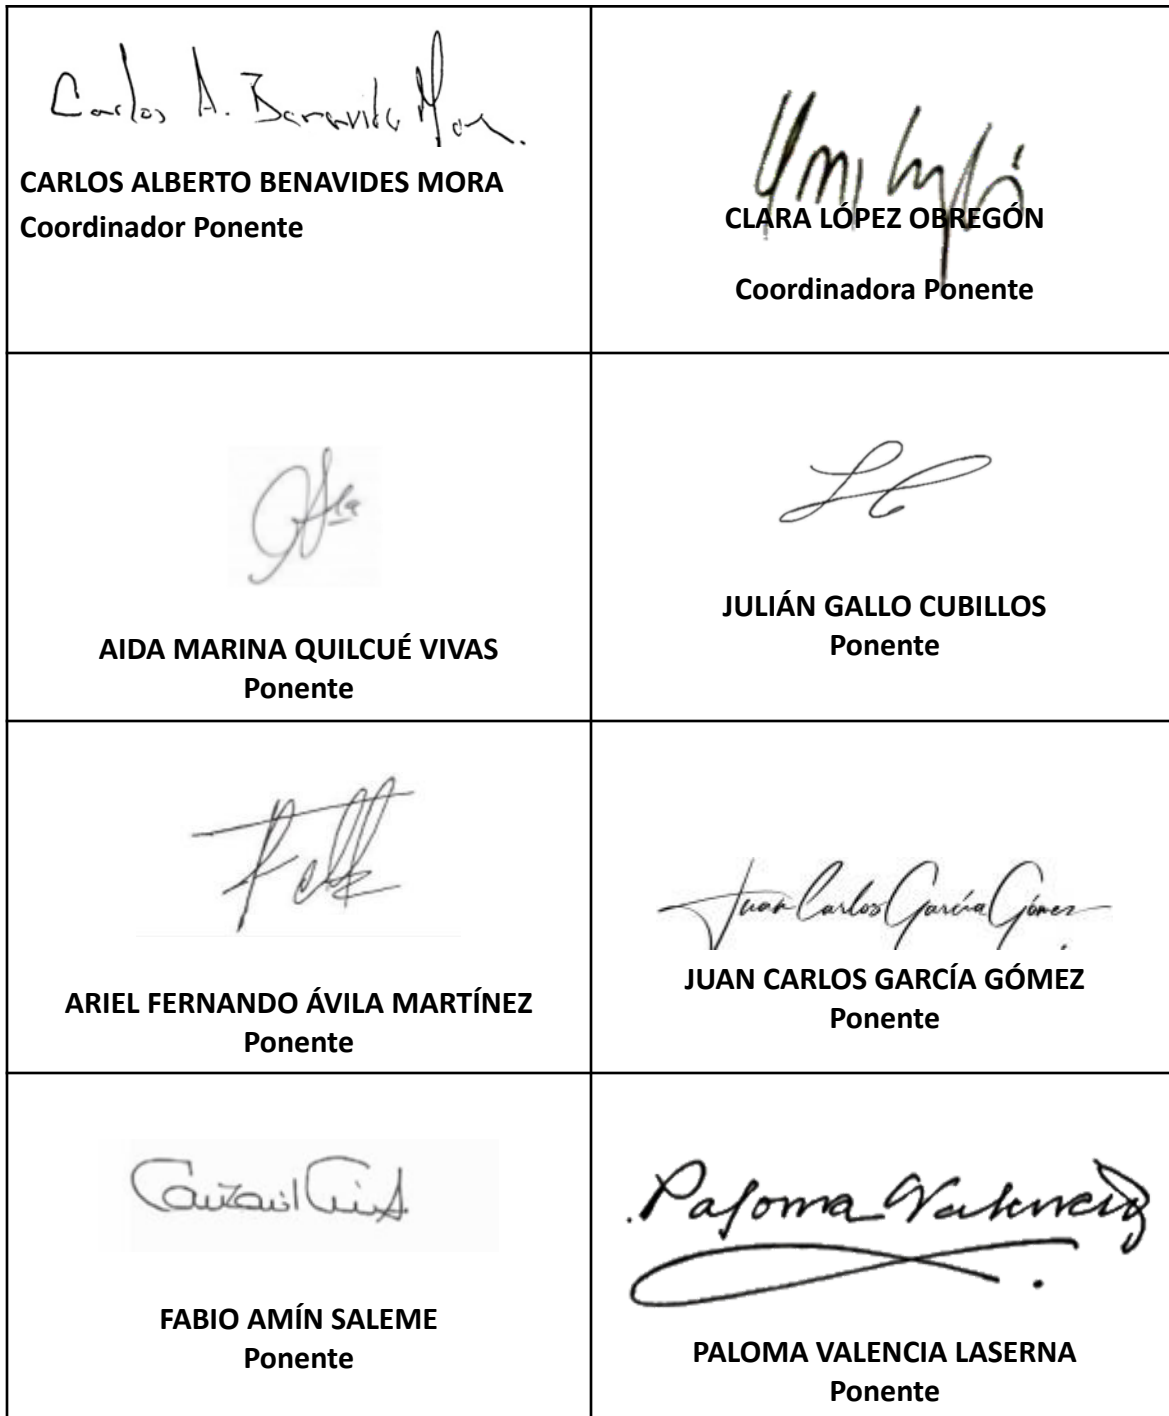 Carlos A. Benavides Mora.
CARLOS ALBERTO BENAVIDES MORA
Coordinador Ponente
CLARA LÓPEZ OBREGÓN
Coordinadora Ponente
AIDA MARINA QUILCUÉ VIVAS
Ponente
JULIÁN GALLO CUBILLOS
Ponente
ARIEL FERNANDO ÁVILA MARTÍNEZ
Ponente
Juan Carlos García Gómez
JUAN CARLOS GARCÍA GÓMEZ
Ponente
FABIO AMÍN SALEME
Ponente
Paloma Valencia
PALOMA VALENCIA LASERNA
Ponente